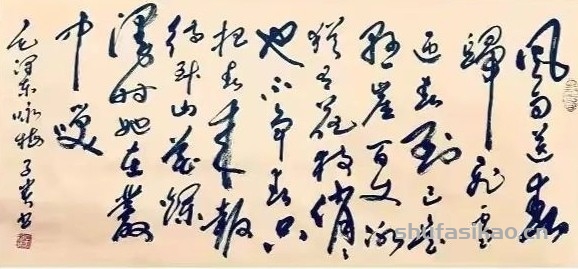 風雨送春
歸飛雪
迎春到已是
懸崖百丈冰
猶有花枝俏〻
也不争春只
把春来報
待到山花爛
漫时她在叢
中笑
毛澤东咏梅 子贵书
shufasikao.cn